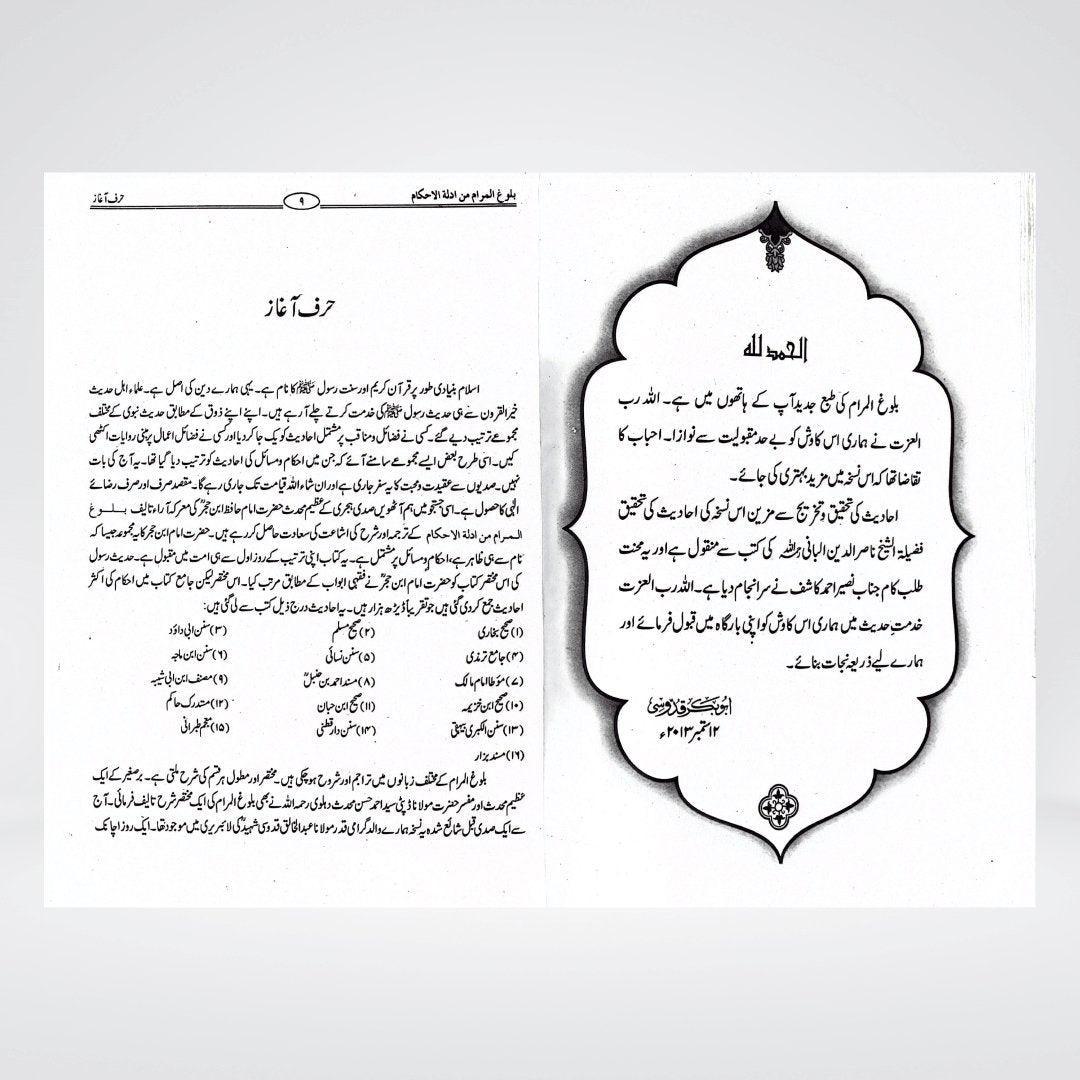 الحمد لله
بلوغ المرام کی طبع جدید آپ کے ہاتھوں میں ہے۔ اللہ رب
العزت نے ہماری اس کاوش کو بے حد مقبولیت سے نوازا۔ احباب کا
تقاضا تھا کہ اس نسخہ میں مزید بہتری کی جائے۔
احادیث کی تحقیق و تخریج سے مزین اس نسخہ کی احادیث کی تحقیق
فضیلۃ الشیخ ناصر الدین البانی رحمہ اللہ کی کتب سے منقول ہے اور یہ محنت
طلب کام جناب نصیر احمد کاشف نے سرانجام دیا ہے۔ اللہ رب العزت
خدمتِ حدیث میں ہماری اس کاوش کو اپنی بارگاہ میں قبول فرمائے اور
ہمارے لیے ذریعہ نجات بنائے۔
ابوبکر قدوسی
۱۲ ستمبر ۲۰۱۳ء
بلوغ المرام من ادلة الاحکام ۹ حرف آغاز
حرف آغاز
اسلام بنیادی طور پر قرآن کریم اور سنت رسول ﷺ کا نام ہے۔ یہی ہمارے دین کی اصل ہے۔ علماء اہل حدیث
خیر القرون سے ہی حدیث رسول ﷺ کی خدمت کرتے چلے آ رہے ہیں۔ اپنے اپنے ذوق کے مطابق حدیث نبوی کے مختلف
مجموعے ترتیب دیے گئے۔ کسی نے فضائل و مناقب پر مشتمل احادیث کو یک جا کر دیا اور کسی نے فضائل اعمال پر مبنی روایات اکٹھی
کیں۔ اسی طرح بعض ایسے مجموعے سامنے آئے کہ جن میں احکام و مسائل کی احادیث کو ترتیب دیا گیا تھا۔ یہ آج کی بات
نہیں۔ صدیوں سے عقیدت و محبت کا یہ سفر جاری ہے اور ان شاء اللہ قیامت تک جاری رہے گا۔ مقصد صرف اور صرف رضائے
الٰہی کا حصول ہے۔ اسی جستجو میں ہم آٹھویں صدی ہجری کے عظیم محدث حضرت امام حافظ ابن حجرؒ کی معرکہ آراء تالیف بلوغ
المرام من ادلة الاحکام کے ترجمہ اور شرح کی اشاعت کی سعادت حاصل کر رہے ہیں۔ حضرت امام ابن حجرؒ کا یہ مجموعہ جیسا کہ
نام سے ہی ظاہر ہے، احکام و مسائل پر مشتمل ہے۔ یہ کتاب اپنی ترتیب کے روز اول سے ہی امت میں مقبول ہے۔ حدیث رسول
کی اس مختصر کتاب کو حضرت امام ابن حجرؒ نے فقہی ابواب کے مطابق مرتب کیا۔ اس مختصر لیکن جامع کتاب میں احکام کی اکثر
احادیث جمع کر دی گئی ہیں جو تقریباً ڈیڑھ ہزار ہیں۔ یہ احادیث درج ذیل کتب سے لی گئی ہیں:
(۱) صحیح بخاری (۲) صحیح مسلم (۳) سنن ابی داؤد
(۴) جامع ترمذی (۵) سنن نسائی (۶) سنن ابن ماجہ
(۷) مؤطا امام مالک (۸) مسند احمد بن حنبلؒ (۹) مصنف ابن ابی شیبہ
(۱۰) صحیح ابن خزیمہ (۱۱) صحیح ابن حبان (۱۲) مستدرک حاکم
(۱۳) سنن الکبریٰ بیہقی (۱۴) سنن دار قطنی (۱۵) معجم طبرانی
(۱۶) مسند بزار
بلوغ المرام کے مختلف زبانوں میں تراجم اور شروح ہو چکی ہیں۔ مختصر اور مطول ہر قسم کی شرح ملتی ہے۔ برصغیر کے ایک
عظیم محدث اور مفسر حضرت مولانا ڈپٹی سید احمد حسن محدث دہلوی رحمہ اللہ نے بھی بلوغ المرام کی ایک مختصر شرح تالیف فرمائی۔ آج
سے ایک صدی قبل شائع شدہ یہ نسخہ ہمارے والد گرامی قدر مولانا عبدالخالق قدوسی شہیدؒ کی لائبریری میں موجود تھا۔ ایک روز اچانک